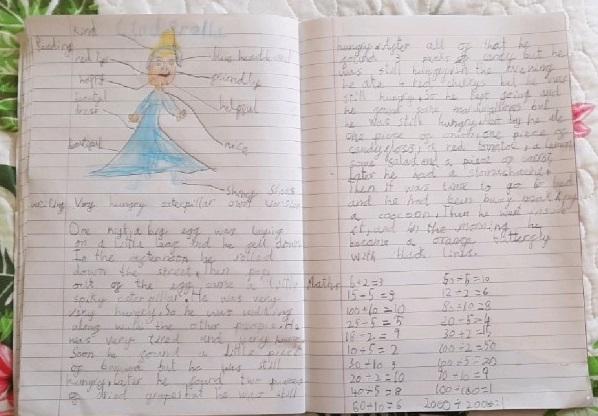 Kind Cinderella
Reading
red lips blue headband
happy friendly
helpful
nice
Shiny Shoes
writing Very hungry caterpillar own version
One night, a big egg was laying
on a little leaf and he fell down
In the afternoon he rolled
down the street, then pop
out of the egg came a little
spiky caterpillar. He was very
very hungry. So he was walking
along with the other people. He
was very tired and very
Soon he found a little piece
of but he was still
hungry. Later he found two pieces
of red grapes but he was still
hungry. After all of that he
found 3 packs of candy but he
was still hungry. In the evening
he ate 4 red but he was
still hungry. So he kept going and
he found some but
he was still hungry. So he ate
one piece of onion, one piece of
candyfloss, a red tomato, a lemon
some salad and a piece of carrot
Later he had a stomachache.
Then it was time to go to bed
and he had been busy
a cocoon. Then he was inside
it, and in the morning he
became a orange butterfly
with black lines.
Maths 6÷2=3 50÷5=10
15÷5=3 12÷2=6
100÷10=10 80÷10=8
25÷5=5 20÷5=4
18÷2=9 30÷2=15
10÷5=2 100÷2=50
30÷10=3 100÷5=20
20÷2=10 90÷10=9
40÷5=8 100÷100=1
60÷10=6 2000÷2000=1